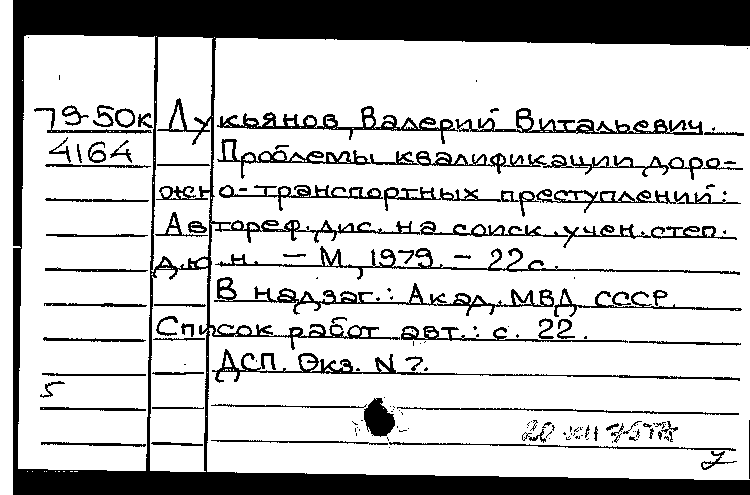 79-50к Лукьянов, Валерий Витальевич.
4164 Проблемы квалификации доро-
жно-транспортных преступлений:
Автореф. дис. на соиск. учен. степ.
д.ю.н. – М., 1979. – 22 с.
В надзаг.: Акад. МВД СССР.
Список работ авт.: с. 22.
ДСП. Экз. N 7.
5
20